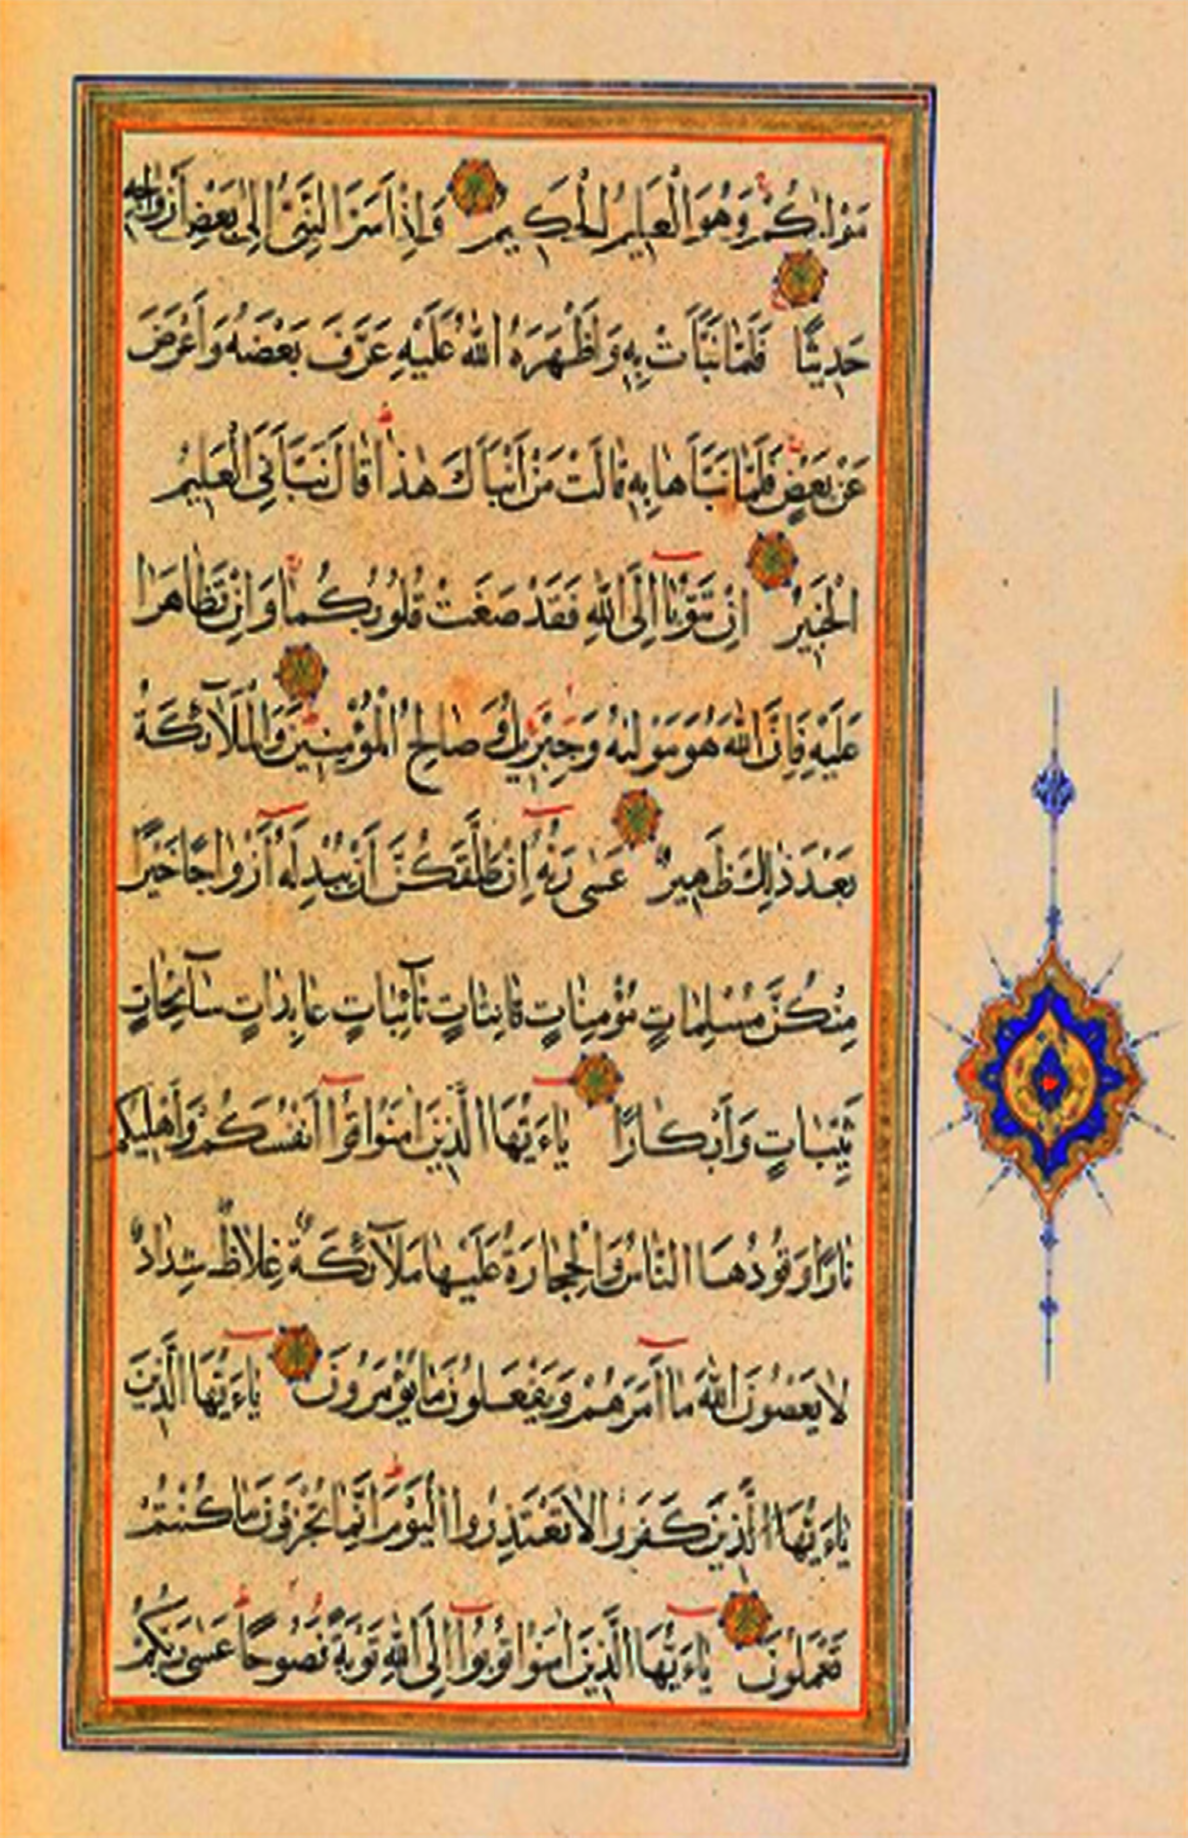 مَوْلٰيكُمْ وَهُوَ الْعَلِيمُ الْحَكِيمُ وَاِذْ اَسَرَّ النَّبِىُّ اِلٰى بَعْضِ اَزْوَاجِهِ
حَدِيثًا فَلَمَّا نَبَّاَتْ بِهِ وَاَظْهَرَهُ اللّٰهُ عَلَيْهِ عَرَّفَ بَعْضَهُ وَاَعْرَضَ
عَنْ بَعْضٍ فَلَمَّا نَبَّاَهَا بِهِ قَالَتْ مَنْ اَنْبَاَكَ هٰذَا قَالَ نَبَّاَنِىَ الْعَلِيمُ
الْخَبِيرُ اِنْ تَتُوبَا اِلَى اللّٰهِ فَقَدْ صَغَتْ قُلُوبُكُمَا وَاِنْ تَظَاهَرَا
عَلَيْهِ فَاِنَّ اللّٰهَ هُوَ مَوْلٰيهُ وَجِبْرِيلُ وَصَالِحُ الْمُؤْمِنِينَ وَالْمَلَآئِكَةُ
بَعْدَ ذٰلِكَ ظَهِيرٌ عَسٰى رَبُّهُ اِنْ طَلَّقَكُنَّ اَنْ يُبْدِلَهُ اَزْوَاجًا خَيْرًا
مِنْكُنَّ مُسْلِمَاتٍ مُؤْمِنَاتٍ قَانِتَاتٍ تَآئِبَاتٍ عَابِدَاتٍ سَآئِحَاتٍ
ثَيِّبَاتٍ وَاَبْكَارًا يَاءَيُّهَا الَّذِينَ اٰمَنُوا قُوا اَنْفُسَكُمْ وَاَهْلِيكُمْ
نَارًا وَقُودُهَا النَّاسُ وَالْحِجَارَةُ عَلَيْهَا مَلَآئِكَةٌ غِلَاظٌ شِدَادٌ
لَا يَعْصُونَ اللّٰهَ مَا اَمَرَهُمْ وَيَفْعَلُونَ مَا يُؤْمَرُونَ يَاءَيُّهَا الَّذِينَ
يَاءَيُّهَا الَّذِينَ كَفَرُوا لَا تَعْتَذِرُوا الْيَوْمَ اِنَّمَا تُجْزَوْنَ مَا كُنْتُمْ
تَعْمَلُونَ يَاءَيُّهَا الَّذِينَ اٰمَنُوا تُوبُوا اِلَى اللّٰهِ تَوْبَةً نَصُوحًا عَسٰى رَبُّكُمْ